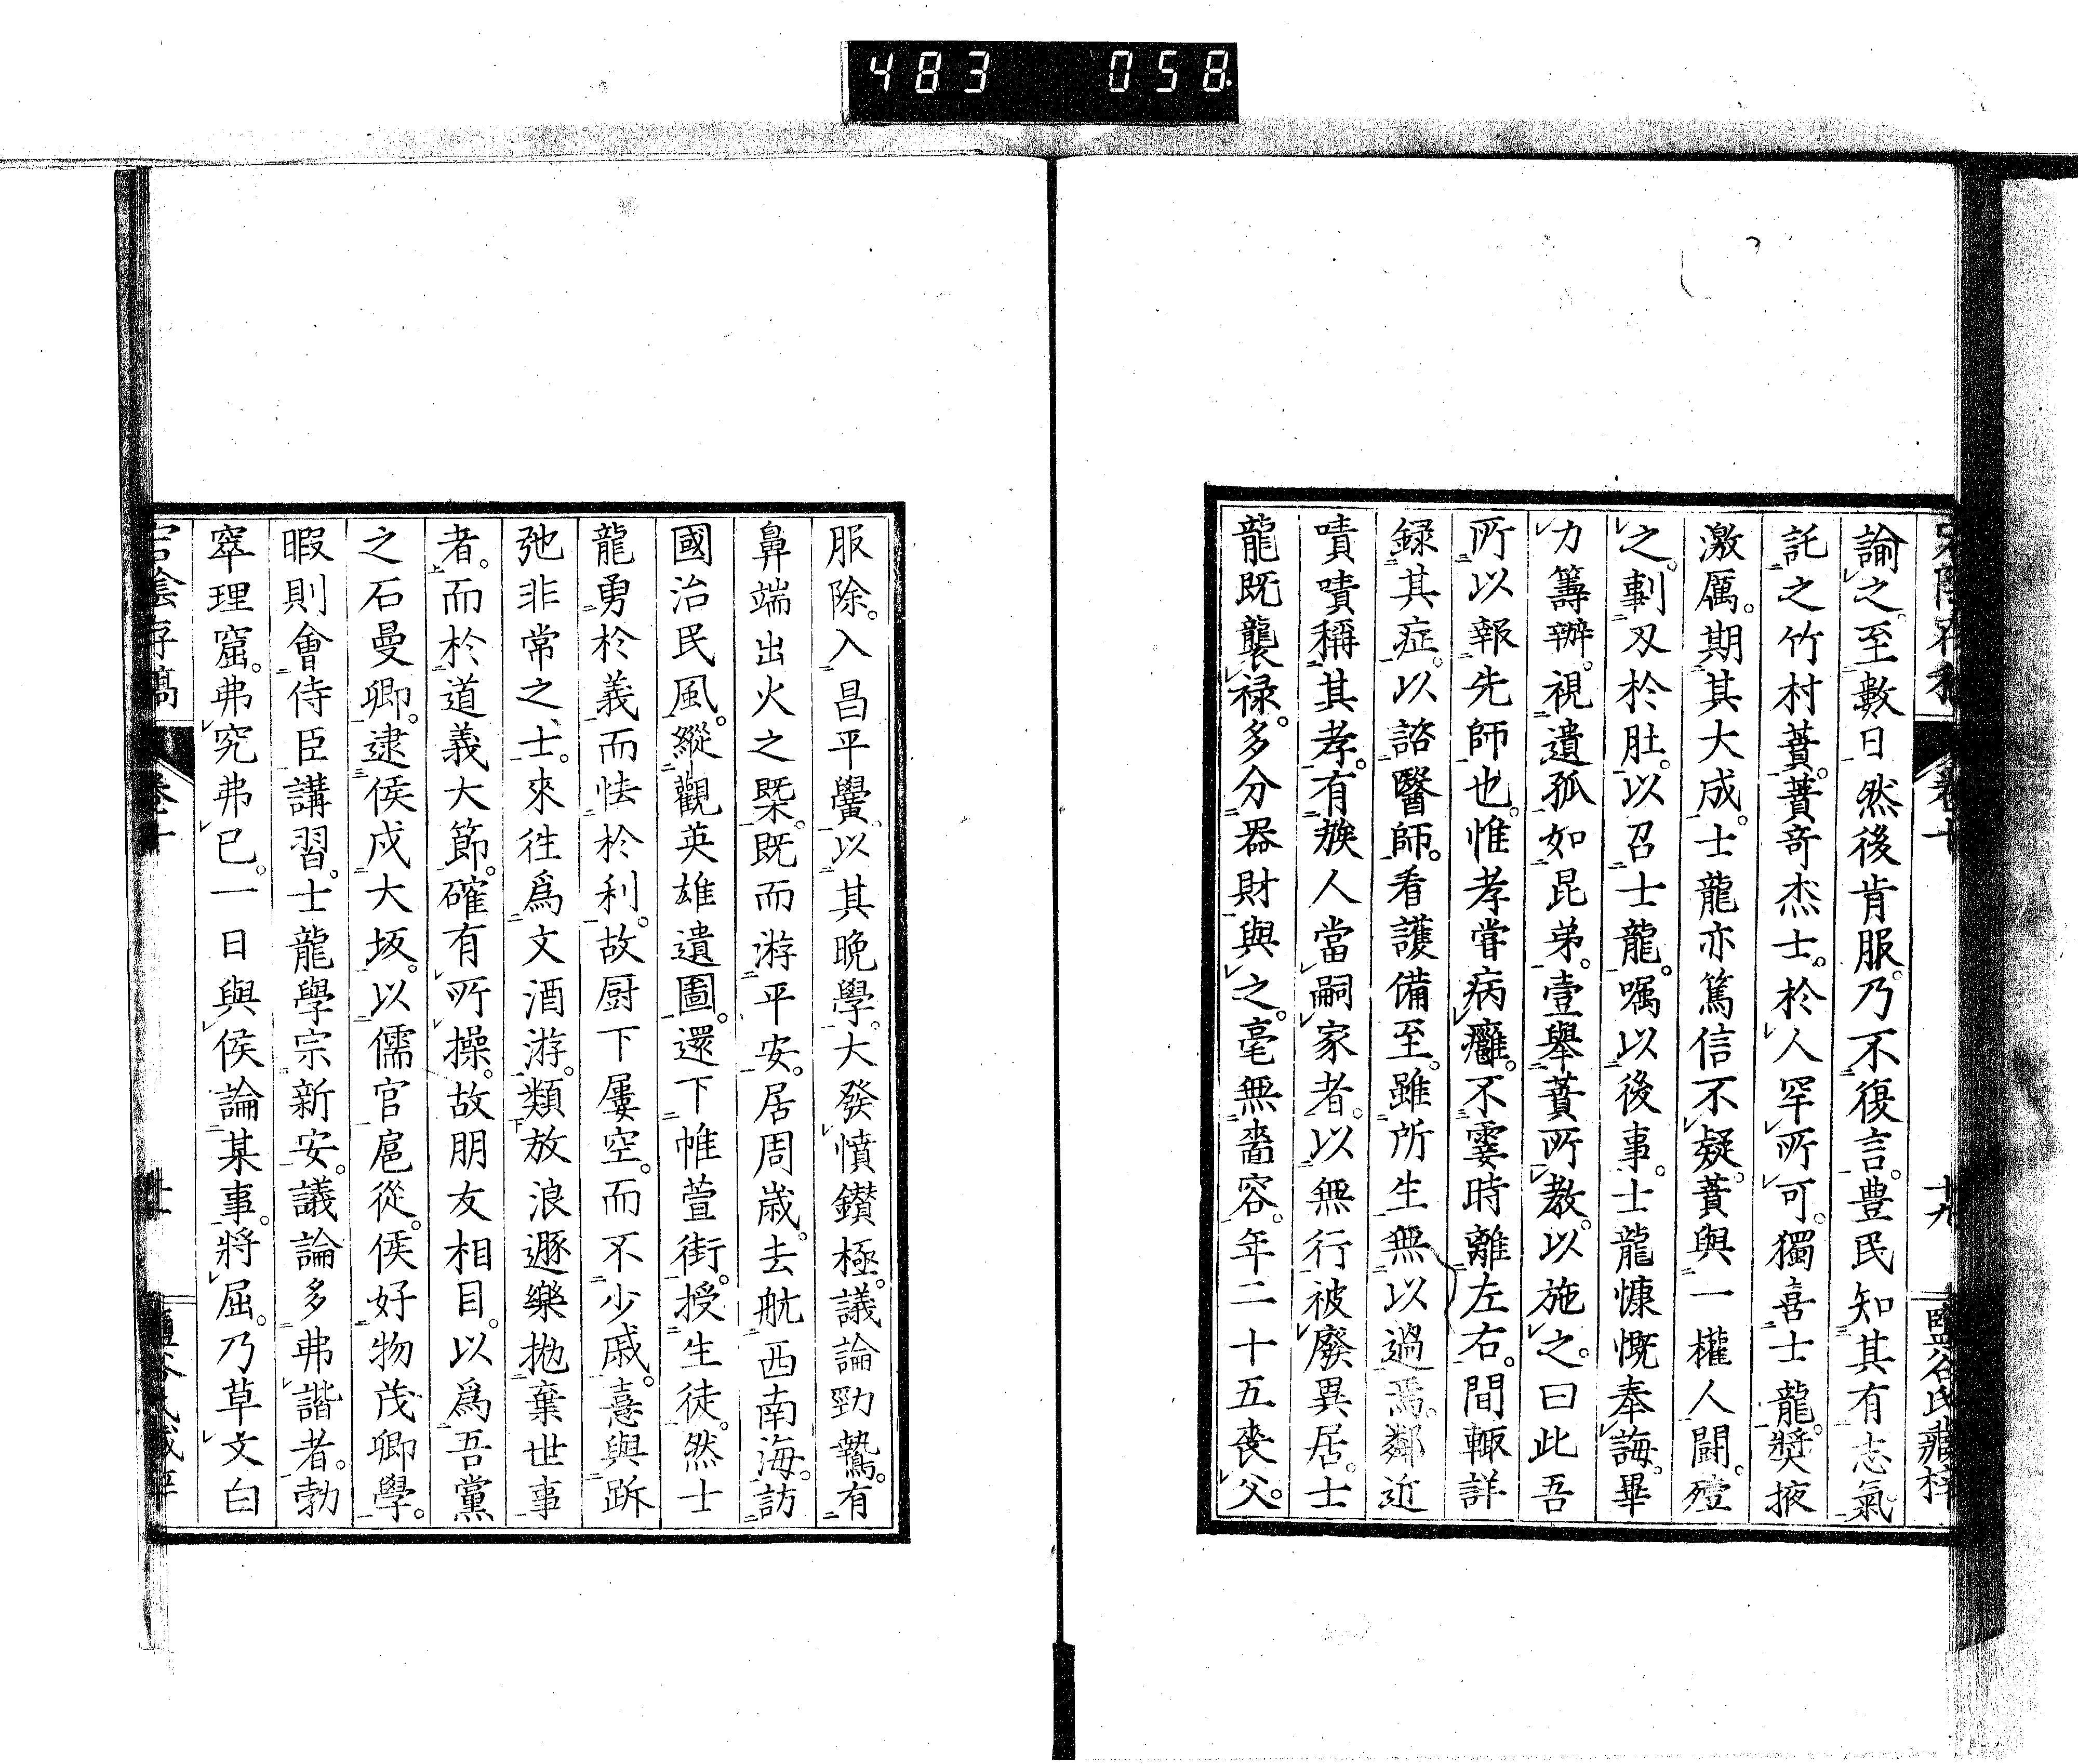 483 058
卷十 十九 鹽谷氏藏梓
諭之。至數日然後肯服。乃不復言。豊民知其有志氣
託之竹村蕡。蕡奇杰士。於人罕所可。獨喜士龍。奬掖
激厲。期其大成。士龍亦篤信不疑。蕡與一權人鬪。殪
之。剚刃於肚。以召士龍。囑以後事。士龍慷慨奉誨。畢
力籌辦。視遺孤如昆弟。壹舉蕡所教。以施之。曰此吾
所以報先師也。惟孝嘗病癰。不霎時離左右。間輙詳
録其症。以諮醫師。看護備至。雖所生無以過焉。鄰近
嘖嘖稱其孝。有族人當嗣家者。以無行被廢異居。士
龍既襲禄。多分器財與之。毫無嗇容。年二十五喪父。
服除。入昌平黌。以其晩學。大發憤鑚極。議論勁鷙。有
鼻端出火之槩。既而游平安。居周歳。去航西南海。訪
國治民風。縱觀英雄遺圖。還下帷萱街。授生徒。然士
龍勇於義而怯於利。故厨下屢空。而不少戚。憙與跅
弛非常之士。來往爲文酒游。類放浪遯樂抛棄世事
者。而於道義大節。確有所操。故朋友相目。以爲吾黨
之石曼卿。逮侯戍大坂。以儒官扈從。侯好物茂卿學。
暇則會侍臣講習。士龍學宗新安。議論多弗諧者。勃
窣理窟。弗究弗已。一日與侯論某事。將屈。乃草文白
宕陰存稿 卷十